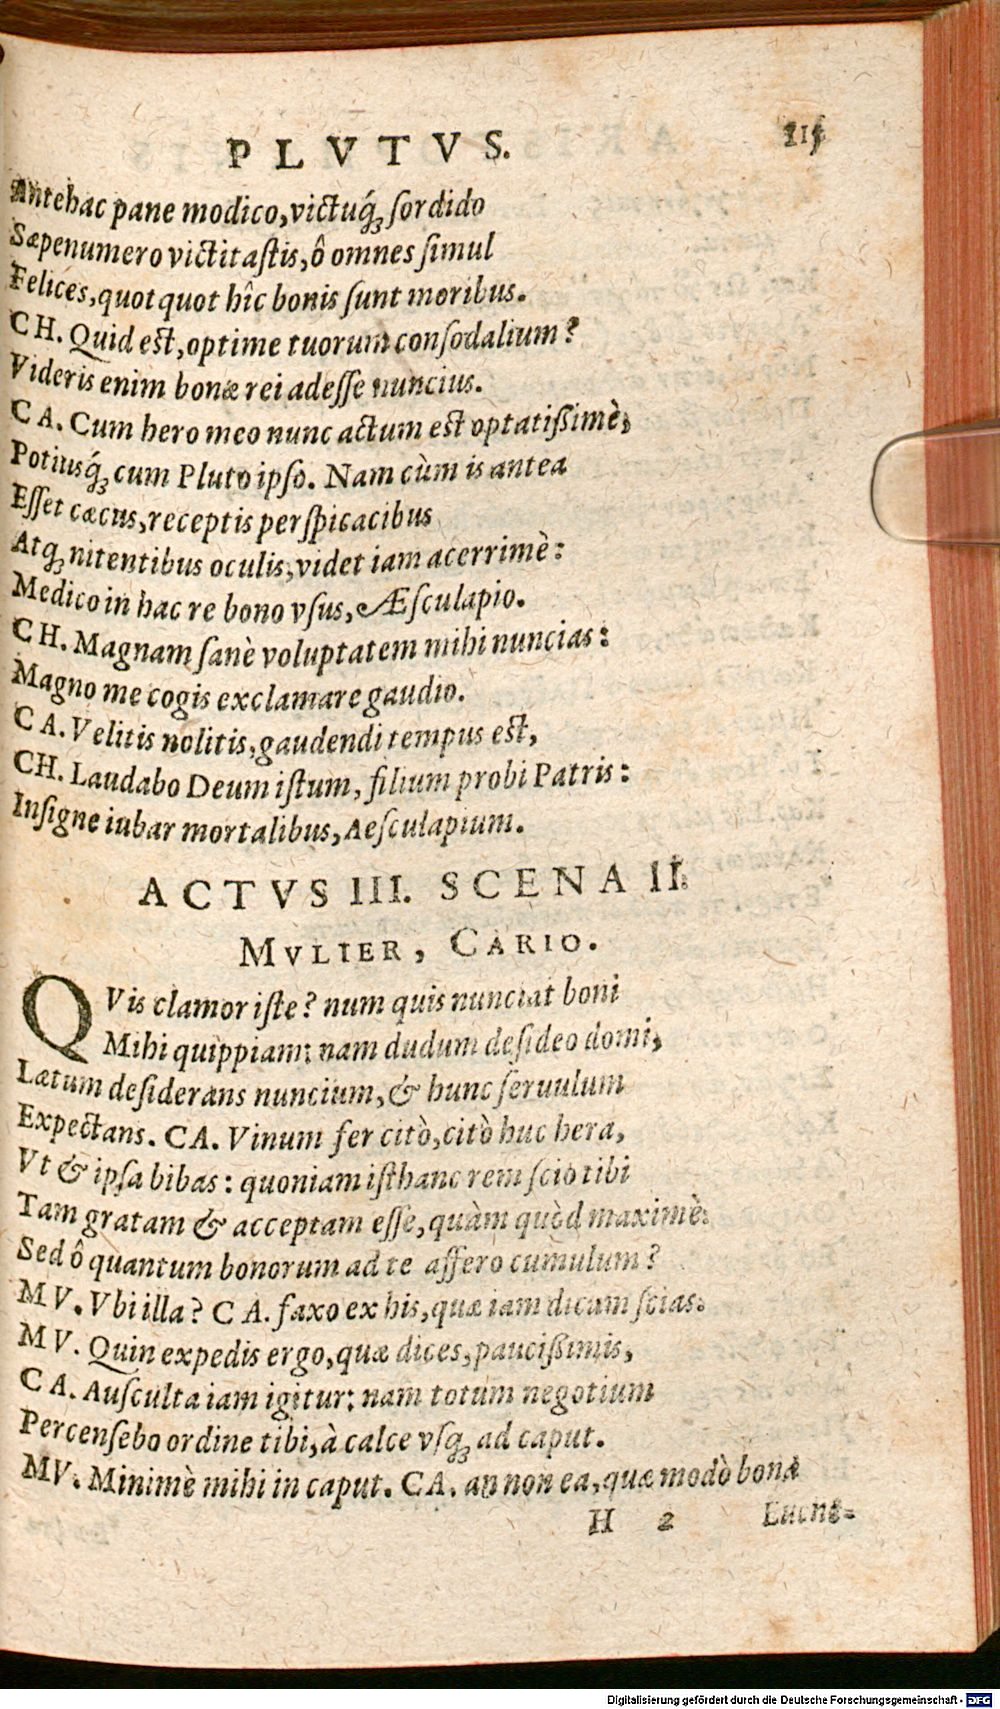 PLVTVS. 115
Antehac pane modico, victuq́ꝫ sordido
Sæpenumero victitastis, ô omnes simul
Felices, quotquot hîc bonis sunt moribus.
CH. Quid est, optime tuorum consodalium?
Videris enim bonæ rei adesse nuncius.
CA. Cum hero meo nunc actum est optatißimè,
Potiusq́ꝫ cum Pluto ipso. Nam cùm is antea
Esset cæcus, receptis perspicacibus
Atqꝫ nitentibus oculis, videt iam acerrimè:
Medico in hac re bono vsus, Æsculapio.
CH. Magnam sanè voluptatem mihi nuncias:
Magno me cogis exclamare gaudio.
CA. Velitis nolitis, gaudendi tempus est,
CH. Laudabo Deum istum, filium probi Patris:
Insigne iubar mortalibus, Aesculapium.
ACTVS III. SCENA II.
MVLIER, CARIO.
QVis clamor iste? num quis nunciat boni
Mihi quippiam: nam dudum desideo domi,
Lætum desiderans nuncium, & hunc seruulum
Expectans. CA. Vinum fer citò, citò huc hera,
Vt & ipsa bibas: quoniam isthanc rem scio tibi
Tam gratam & acceptam esse, quàm quòd maximè.
Sed ô quantum bonorum ad te affero cumulum?
MV. Vbi illa? CA. faxo ex his, quæ iam dicam scias.
MV. Quin expedis ergo, quæ dices, paucißimis,
CA. Ausculta iam igitur: nam totum negotium
Percensebo ordine tibi, à calce vsqꝫ ad caput.
MV. Minimè mihi in caput. CA. an non ea, quæ modò bona
H 2 Euene-
Digitalisierung gefördert durch die Deutsche Forschungsgemeinschaft - DFG